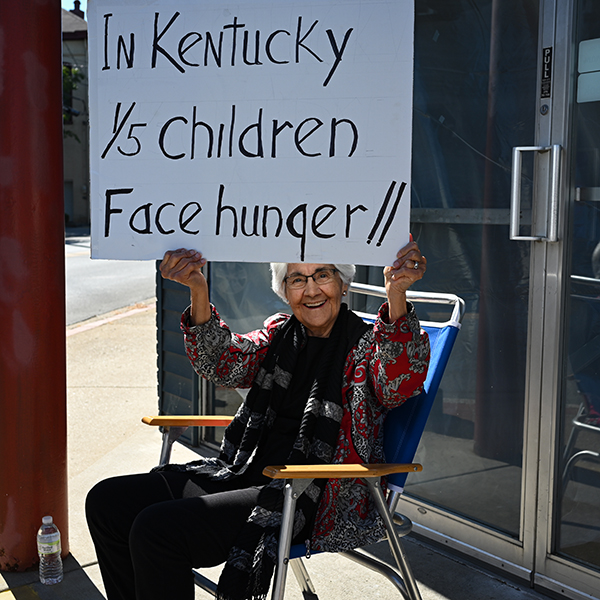 In Kentucky
1/5 children
Face hunger!!
PULL